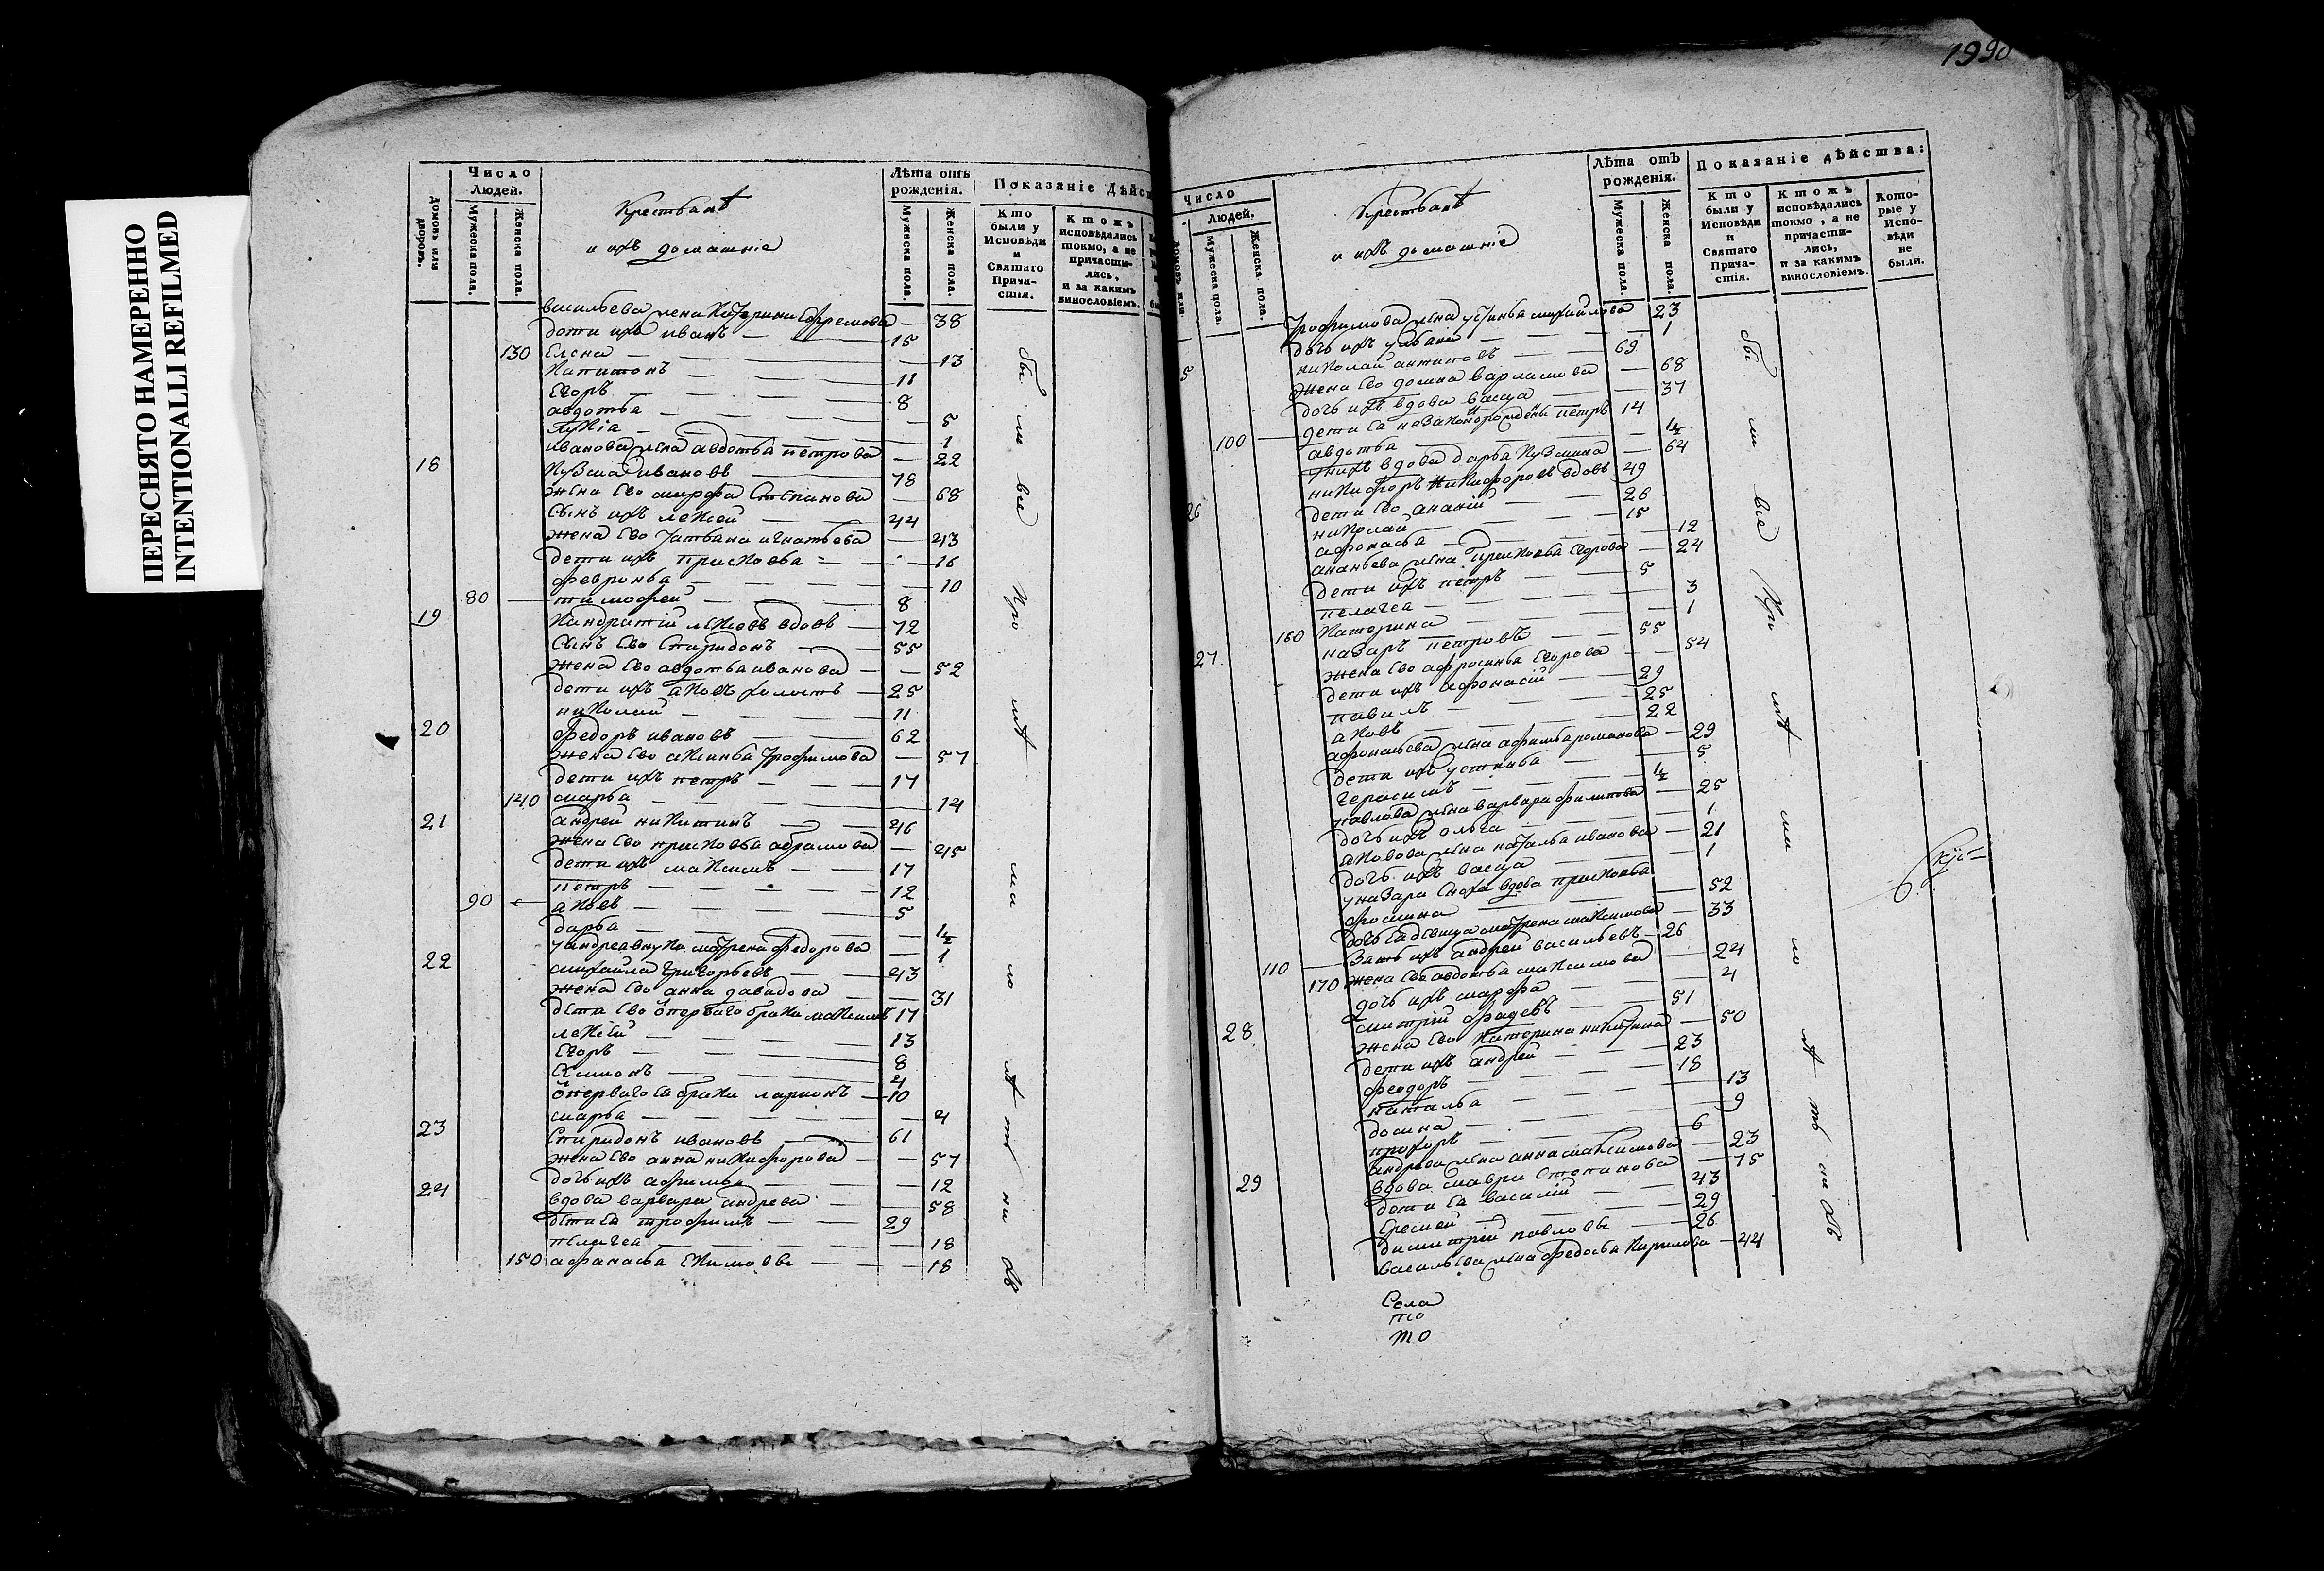 ПЕРЕСНЯТО НАМЕРЕННО
INTENTIONALLI REFILMED
Домовъ или дворовъ.
Число Людей.
Мужеска пола.
Женска пола.
Крестьянѣ
и ихъ домашніе
Лѣта отъ рожденія.
Мужеска пола.
Женска пола.
Показаніе Дѣйс
Кто были у Исповѣди и Святаго Прича-стія.
Ктожъ исповѣдались токмо, а не причасти-лись, и за какимъ винословіемъ.
васильева жена Катерина Ефремова — 38
дети ихъ иванъ — 15
130 Елена — 13
Капитонъ — 11
Егоръ — 8
авдотья — 5
— 1
иванова жена авдотья петрова — 22
18 Кузма ивановъ — 78
жена его марфа Степанова — 68
Сынъ ихъ — 44
жена его татьяна игнатьева — 43
дети ихъ прасковья — 16
февронья — 10
80 — тимофей — 8
19 Кандратій вдовъ — 72
Сынъ его Спиридонъ — 55
жена его авдотья иванова — 52
дети ихъ аковъ холостъ — 25
николай — 11
20 Федоръ ивановъ — 62
жена его аксинья трофимова — 57
дети ихъ петръ — 17
140 марья — 14
21 андрей никитинъ — 46
жена его прасковья абрамова — 45
дети ихъ максимъ — 17
петръ — 12
90 аковъ — 5
дарья — 1/2
у андрея внука матрена федорова — 1
22 михайла григорьевъ — 43
жена его анна давидова — 31
дети его отперваго брака максимъ 17
— 13
Егоръ — 8
— 4
отперваго ея брака ларионъ — 10
марья — 4
23 Спиридонъ ивановъ — 61
жена его анна никифорова — 57
дочь ихъ афимья — 12
24 вдова варвара андреева — 58
дети ея трофимъ — 29
пелагея — 18
150 афанасья — 18
бы ли все
1990
Домовъ или
Число Людей.
Мужеска пола.
Женска пола.
Крестьянѣ
и ихъ домашніе
Лѣта отъ рожденія.
Мужеска пола.
Женска пола.
Показаніе дѣйства:
Кто были у Исповѣди и Святаго Прича-стія.
Ктожъ исповѣдались токмо, а не причасти-лись, и за какимъ винословіемъ.
Кото-рые у Испо-вѣди не были.
Трофимова жена устинья михайлова 23
дочь ихъ ульяна — 1
5 николай антиповъ — 69
жена его домна варламова — 68
дочь ихъ вдова васса — 37
дети ея незаконорожденны петръ 14
100 авдотья — 1/2
у нихъ вдова дарья Кузмина — 64
26 никифоръ никифоровъ вдовъ 49
дети его ананій — 26
николай — 15
афонасья — 12
ананьева жена прасковья Егорова — 24
дети ихъ петръ — 5
пелагея — 3
160 Катерина — 1
27 назаръ петровъ — 55
жена его афросинья Егорова — 54
дети ихъ афонасій — 29
павилъ — 25
аковъ — 22
афонасьева жена афимья романова — 29
дети ихъ устинья — 5
герасимъ — 1/2
павлова жена варвара филипова — 25
дочь ихъ ольга — 1
аковова жена наталья иванова — 21
дочь ихъ васса — 1
у назара сноха вдова прасковья
фомина — 52
дочь ея девица матрена максимова — 33
110 — Зять ихъ андрей васильевъ — 26
170 жена его авдотья максимова — 24
дочь ихъ марфа — 4
28 митрій фадевъ — 51
жена его Катерина никитина — 50
дети ихъ андрей — 23
феодоръ — 18
наталья — 13
домна — 9
прохоръ — 6
андреева жена анна максимова — 23
29 вдова мавра Степанова — 75
дети ея василій — 43
Еремей — 29
димитрій павловъ — 26
васильева жена федосья Кирилова — 44
бы ли все
Села
по
то